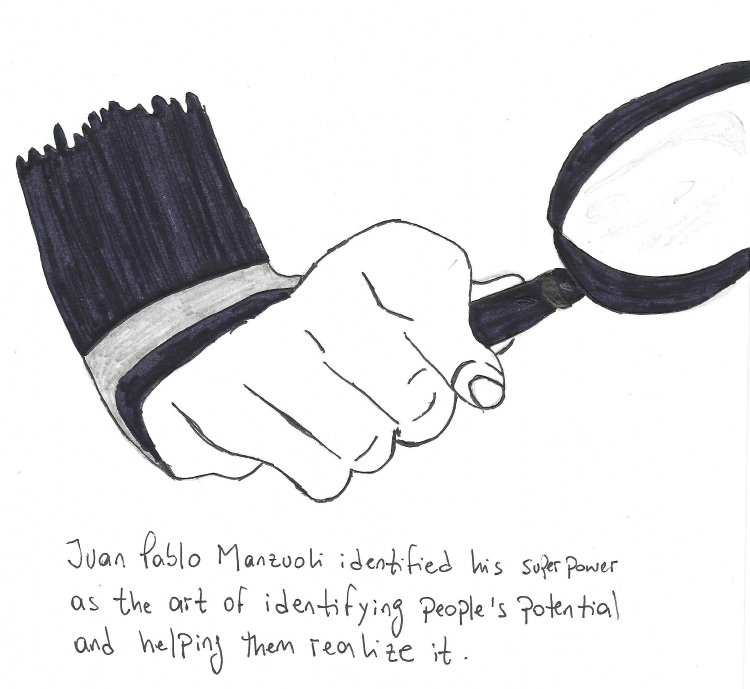 Juan Pablo Manzuoli identified his superpower
as the art of identifying people's potential
and helping them realize it.